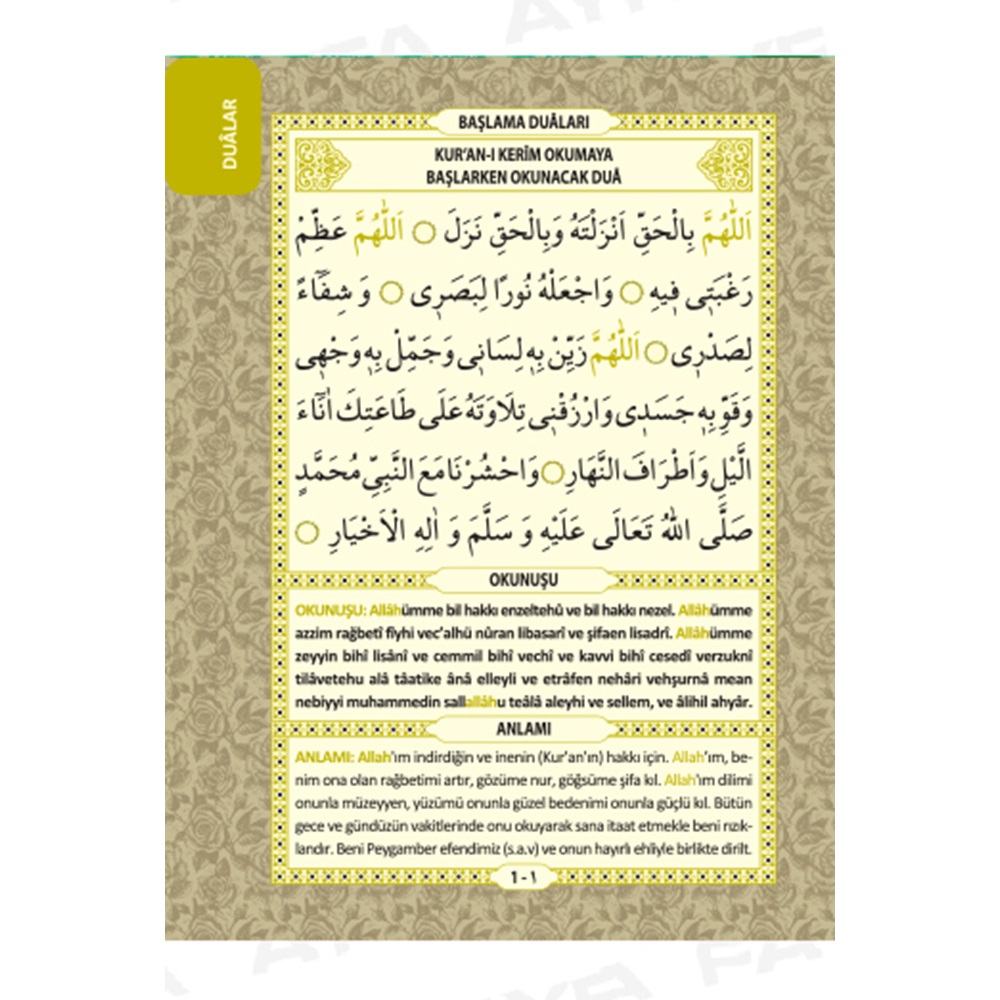 DUÂLAR
BAŞLAMA DUÂLARI
KUR'AN-I KERÎM OKUMAYA
BAŞLARKEN OKUNACAK DUÂ
اَللّٰهُمَّ بِالْحَقِّ اَنْزَلْتَهُ وَبِالْحَقِّ نَزَلَ ۝ اَللّٰهُمَّ عَظِّمْ
رَغْبَتٖى فٖيهِ ۝ وَاجْعَلْهُ نُورًا لِبَصَرٖى ۝ وَ شِفَٓاءً
لِصَدْرٖى ۝ اَللّٰهُمَّ زَيِّنْ بِهٖ لِسَانٖى وَجَمِّلْ بِهٖ وَجْهٖى
وَقَوِّ بِهٖ جَسَدٖى وَارْزُقْنٖى تِلَاوَتَهُ عَلَى طَاعَتِكَ اٰنَٓاءَ
الَّيْلِ وَاَطْرَافَ النَّهَارِ ۝ وَاحْشُرْنَا مَعَ النَّبِيِّ مُحَمَّدٍ
صَلَّى اللّٰهُ تَعَالَى عَلَيْهِ وَ سَلَّمَ وَ اٰلِهِ الْاَخْيَارِ ۝
OKUNUŞU
OKUNUŞU: Allâhümme bil hakkı enzeltehû ve bil hakkı nezel. Allâhümme
azzim rağbetî fîyhi vec'alhü nûran libasarî ve şifaen lisadrî. Allâhümme
zeyyin bihî lisânî ve cemmil bihî vechî ve kavvi bihî cesedî verzuknî
tilâvetehu alâ tâatike ânâ elleyli ve etrâfen nehâri vehşurnâ mean
nebiyyi muhammedin sallallâhu teâlâ aleyhi ve sellem, ve âlihil ahyâr.
ANLAMI
ANLAMI: Allah'ım indirdiğin ve inenin (Kur'an'ın) hakkı için. Allah'ım, be-
nim ona olan rağbetimi artır, gözüme nur, göğsüme şifa kıl. Allah'ım dilimi
onunla müzeyyen, yüzümü onunla güzel bedenimi onunla güçlü kıl. Bütün
gece ve gündüzün vakitlerinde onu okuyarak sana itaat etmekle beni rızık-
landır. Beni Peygamber efendimiz (s.a.v) ve onun hayırlı ehliyle birlikte dirilt.
1 - ١